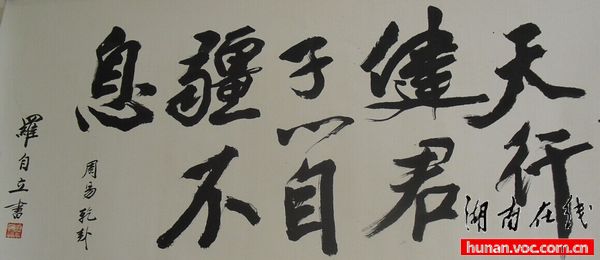 天行
健君
子以自
疆不
息
周易乾卦
羅自立書
湖南在线
hunan.voc.com.cn